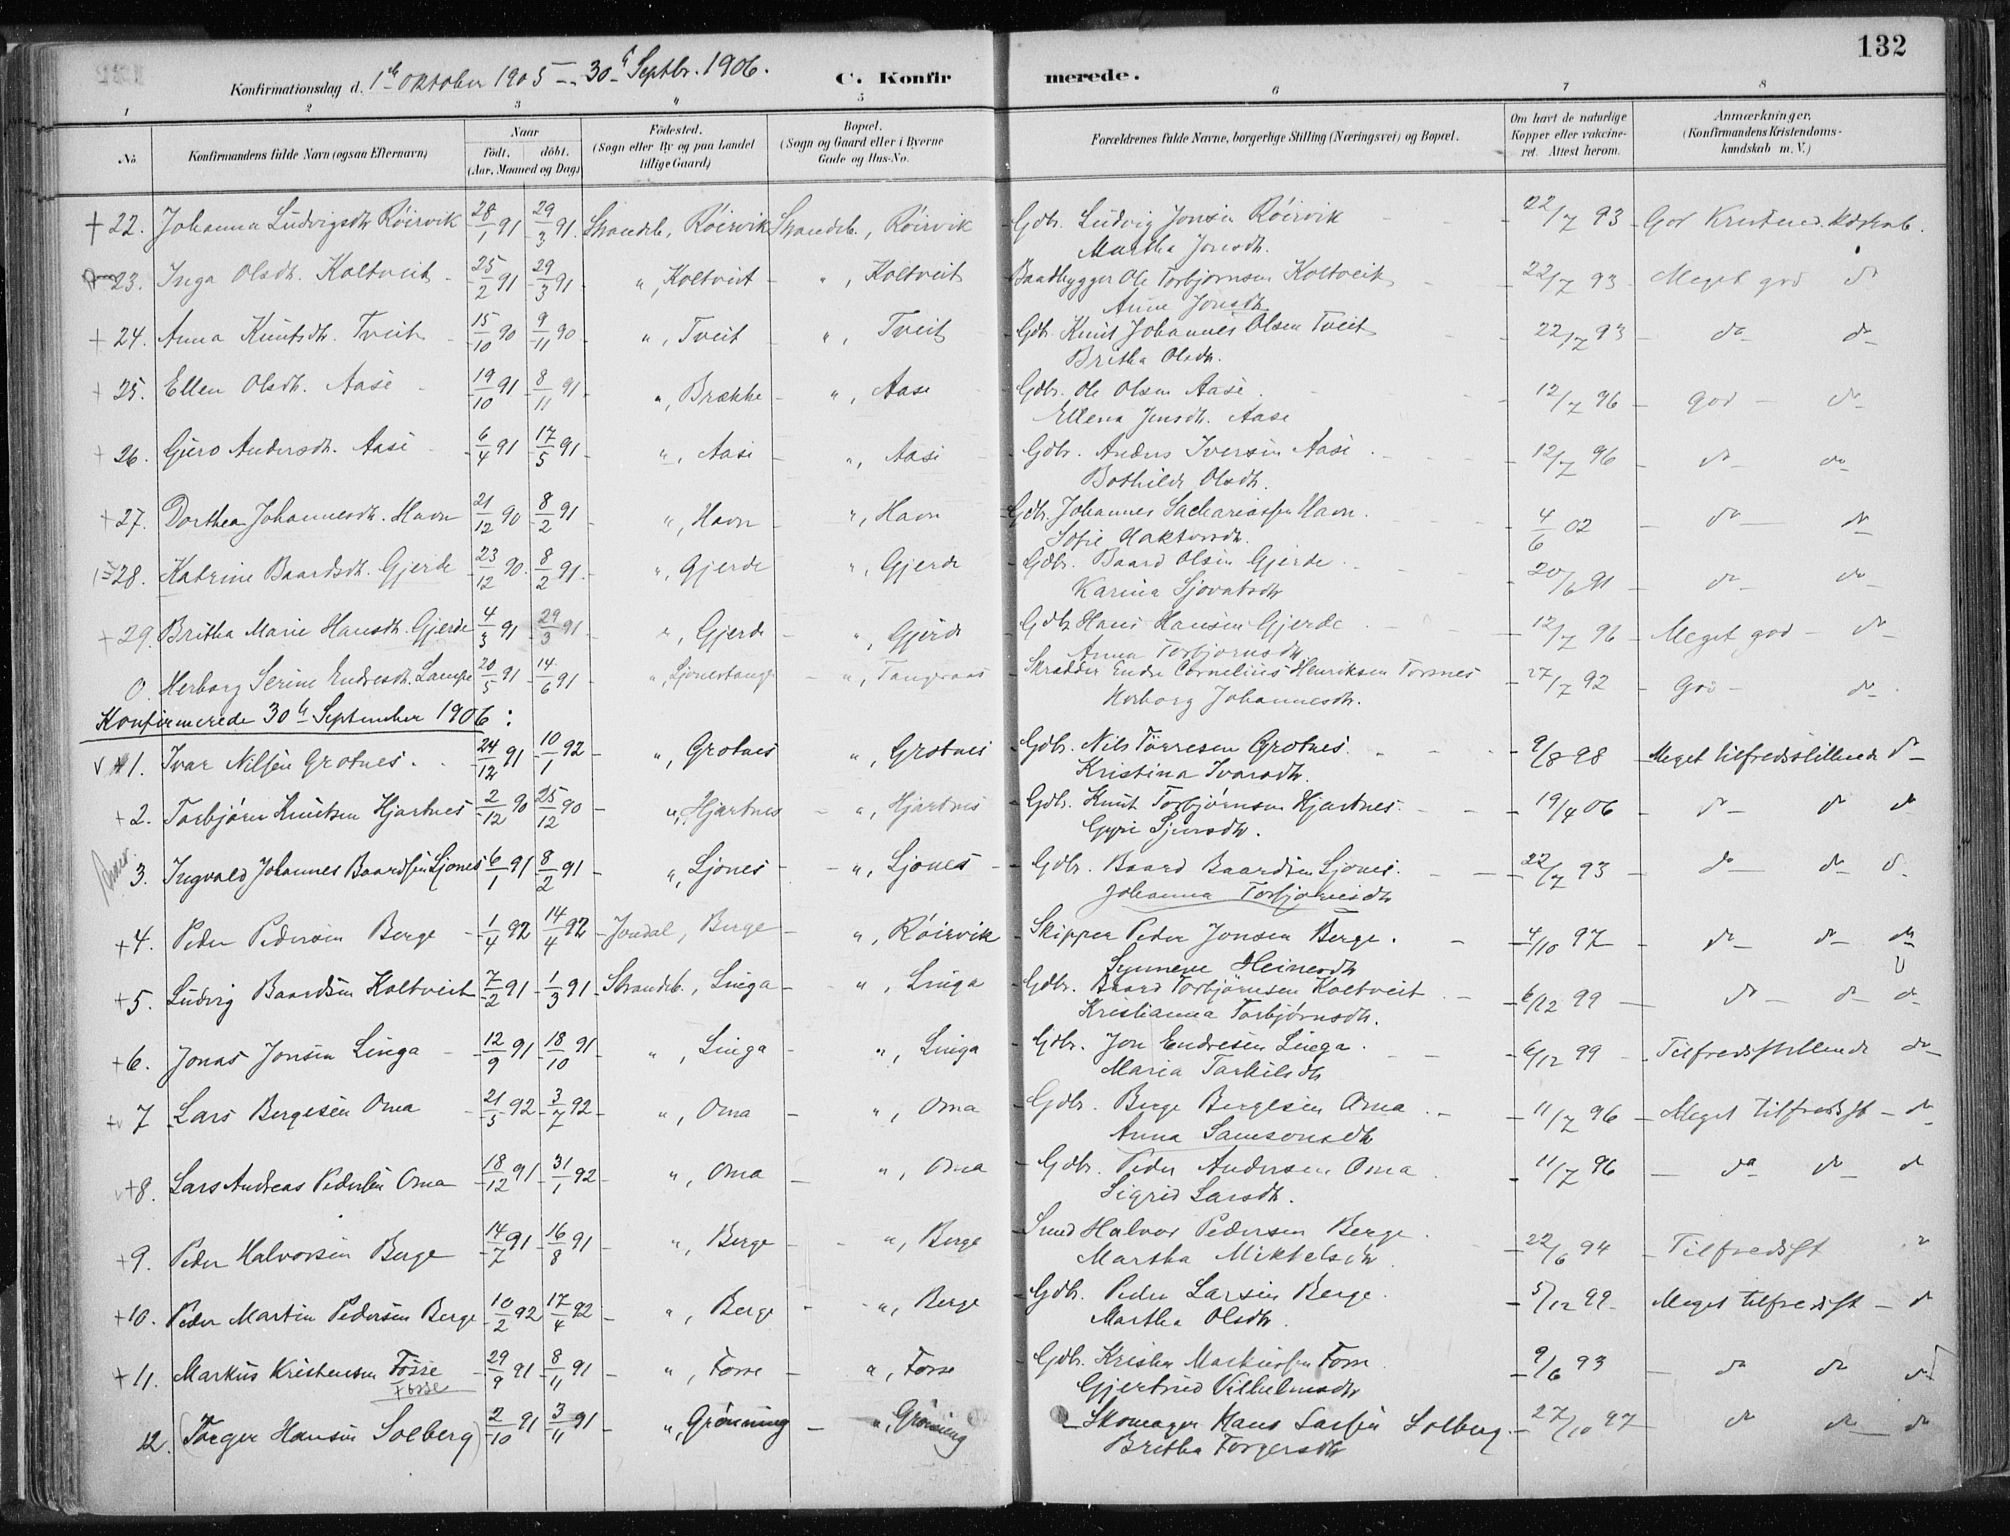 132
Konfirmationsdag d. 1ste Oktober 1905 – 30te Septbr. 1906. C. Konfirmerede.
1 2 3 4 5 6 7 8
No. Konfirmandens fulde Navn (ogsaa Efternavn) Naar født, døbt. (Aar, Maaned og Dag) Fødested. (Sogn eller By og paa Landet tillige Gaard) Bopæl. (Sogn og Gaard eller i Byerne Gade og Hus-No. Forældrenes fulde Navne, borgerlige Stilling (Næringsvei) og Bopæl. Om havt de naturlige Kopper eller vakcineret. Attest herom. Anmærkninger, (Konfirmandens Kristendomskundskab m. V.)
+ 22. Johanna Ludvigsdtr Røirvik 28/1 91 29/3 91. Strandeb., Røirvik Strandeb., Røirvik Gdbr. Ludvig Jonsen Røirvik 22/7 93 God Kristend. kdskab.
Martha Jonsdtr.
23. Inga Olsdtr. Koltveit 25/2 91 29/3 91 ", Koltveit ", Koltveit Baadbygger Ole Torbjørnsen Koltveit 22/7 93 Meget god do
Anna Jonsdtr
+ 24. Anna Knutsdtr. Tveit 15/10 90 9/11 90 ", Tveit ", Tveit Gdbr. Knut Johannes Olsen Tveit 22/7 93 do do
Britha Olsdtr.
+ 25. Ellen Olsdtr. Aase 19/10 91 8/11 91 ", Brække ", Aase Gdbr. Ole Olsen Aase 12/7 96 God do
Ellena Jensdtr. Aase
+ 26. Guro Andersdtr. Aase 6/4 91 17/5 91 ", Aase ", Aase Gdbr. Anders Iversen Aase 12/7 96 do do
Bothilde Olsdtr.
+ 27. Dorthea Johannesdtr. Havn 21/12 90 8/2 91 ", Havn ", Havn Gdbr. Johannes Sachariassen Havn 4/6 02 do do
Sofie Haktorsdtr.
28. Katrine Baardsdtr. Gjerde 23/12 90. 8/2 91. ", Gjerde ", Gjerde Gdbr. Baard Olsen Gjerde 20/6 91 do do
Karina Sjovatsdtr
+ 29. Britha Marie Hansdtr. Gjerde 4/3 91 29/3 91 ", Gjerde ", Gjerde Gdbr Hans Hansen Gjerde 12/7 96 Meget god do
Anna Torbjørnsdtr
0. Herborg Serine Endresdtr. Lampe 20/5 91 14/6 91 ", Ljonestangen ", Tangeraas Skrædder Endre Cornelius Henriksen Tornes 27/7 92 God do
Herborg Johannesdtr.
Konfirmerede 30te September 1906:
1. Ivar Nilsen Grotnes. 24/12 91 10/1 92 ", Grotnes ", Grotnes Gdbr. Nils Tørresen Grotnes. 9/8 98 Meget tilfredsstillende do
Kristina Ivarsdtr.
+ 2. Torbjørn Knutsen Hjartnes 2/12 90 25/12 90 ", Hjartnes ", Hjartnes Gdbr. Knut Torbjørnsen Hjartnes. 19/4 06 do do do
Gyri Sjursdtr.
3. Ingvald Johannes Baardsen Ljones 6/1 91 8/2 91 ", Ljones ", Ljones Gdbr. Baard Baardsen Ljones. 22/7 93 do do do
Johanna Torbjørnsdtr
+ 4. Peder Pedersen Berge 1/4 92 14/4 92 Jondal, Berge ", Røirvik Skipper Peder Jonsen Berge. 4/10 97 do do do
Synneve Heinesdtr
+ 5. Ludvig Baardsen Koltveit 7/2 91 1/3 91 Strandeb., Linga ", Linga Gdbr. Baard Torbjørnsen Koltveit 6/12 99 do do do
Kristianna Torbjørnsdtr.
+ 6. Jonas Jonsen Linga 12/9 91 18/10 91 ", Linga ", Linga Gdbr. Jon Endresen Linga. 6/12 99 Tilfredsstillende do
Maria Torkilsdtr
7 Lars Bergesen Oma 21/5 92 3/7 92 ", Oma ", Oma Gdbr. Berge Bergesen Oma 11/7 96 Meget tilfredsst do
Anna Samsonsdtr
+ 8. Lars Andreas Pedersen Oma 18/12 91 31/1 92 ", Oma ", Oma Gdbr. Peder Andersen Oma 11/7 96 do do do
Sigrid Larsdtr.
+ 9. Peder Halvorsen Berge 14/7 91 16/8 91 ", Berge ", Berge Smed Halvor Pedersen Berge 22/6 94 Tilfredsst do
Martha Mikkelsdtr
+ 10. Peder Martin Pedersen Berge 10/2 92 17/4 92 ", Berge ", Berge Gdbr. Peder Larsen Berge 5/12 99 Meget tilfredsst do
Martha Olsdtr.
+ 11. Markus Kristensen Fosse 29/9 91 8/11 91 ", Fosse ", Fosse Gdbr. Kristen Markussen Fosse 9/6 93 do do do
Fosse Gjertrud Vilhelmsdtr
12. (Torger Hansen Solberg) 2/10 91 3/11 91 ", Grønning ", Grønning Skomager Hans Larsen Solberg 27/10 97 do do do
Britha Torgersdtr